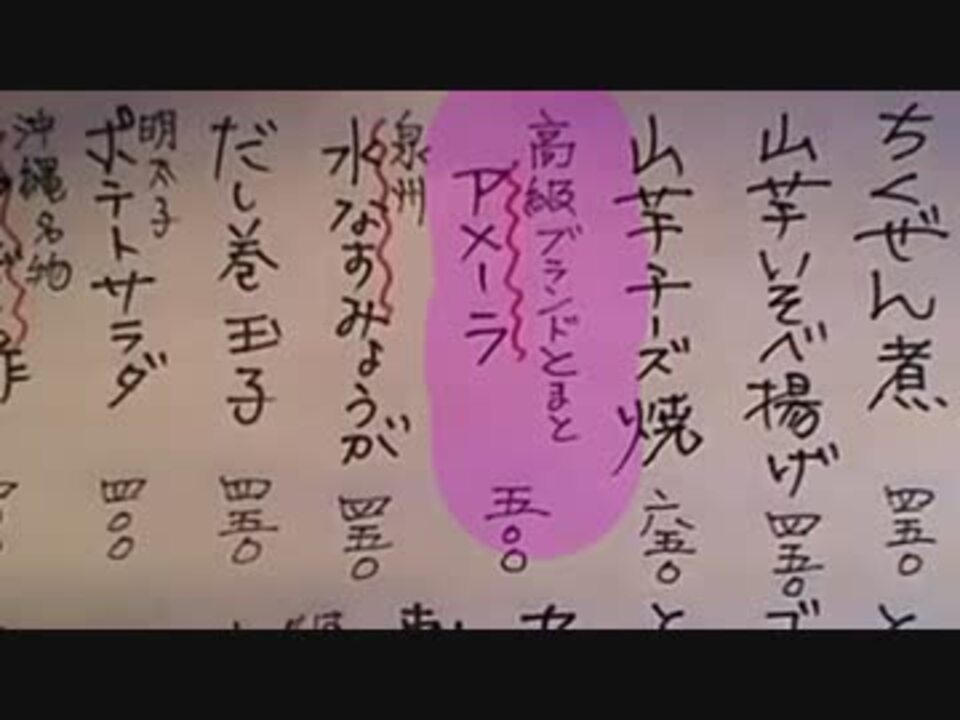 ちくぜん煮 四五〇
山芋いそべ揚げ 四五〇
山芋チーズ焼 六五〇
高級ブランドとまと
アメーラ 五〇〇
泉州
水なすみょうが 四五〇
だし巻玉子 四五〇
明太子
ポテトサラダ 四〇〇
沖縄名物